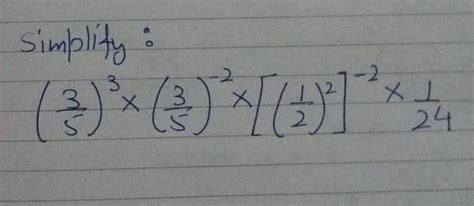 Simplify :
(3/5)³ × (3/5)⁻² × [(1/2)²]⁻² × 1/24